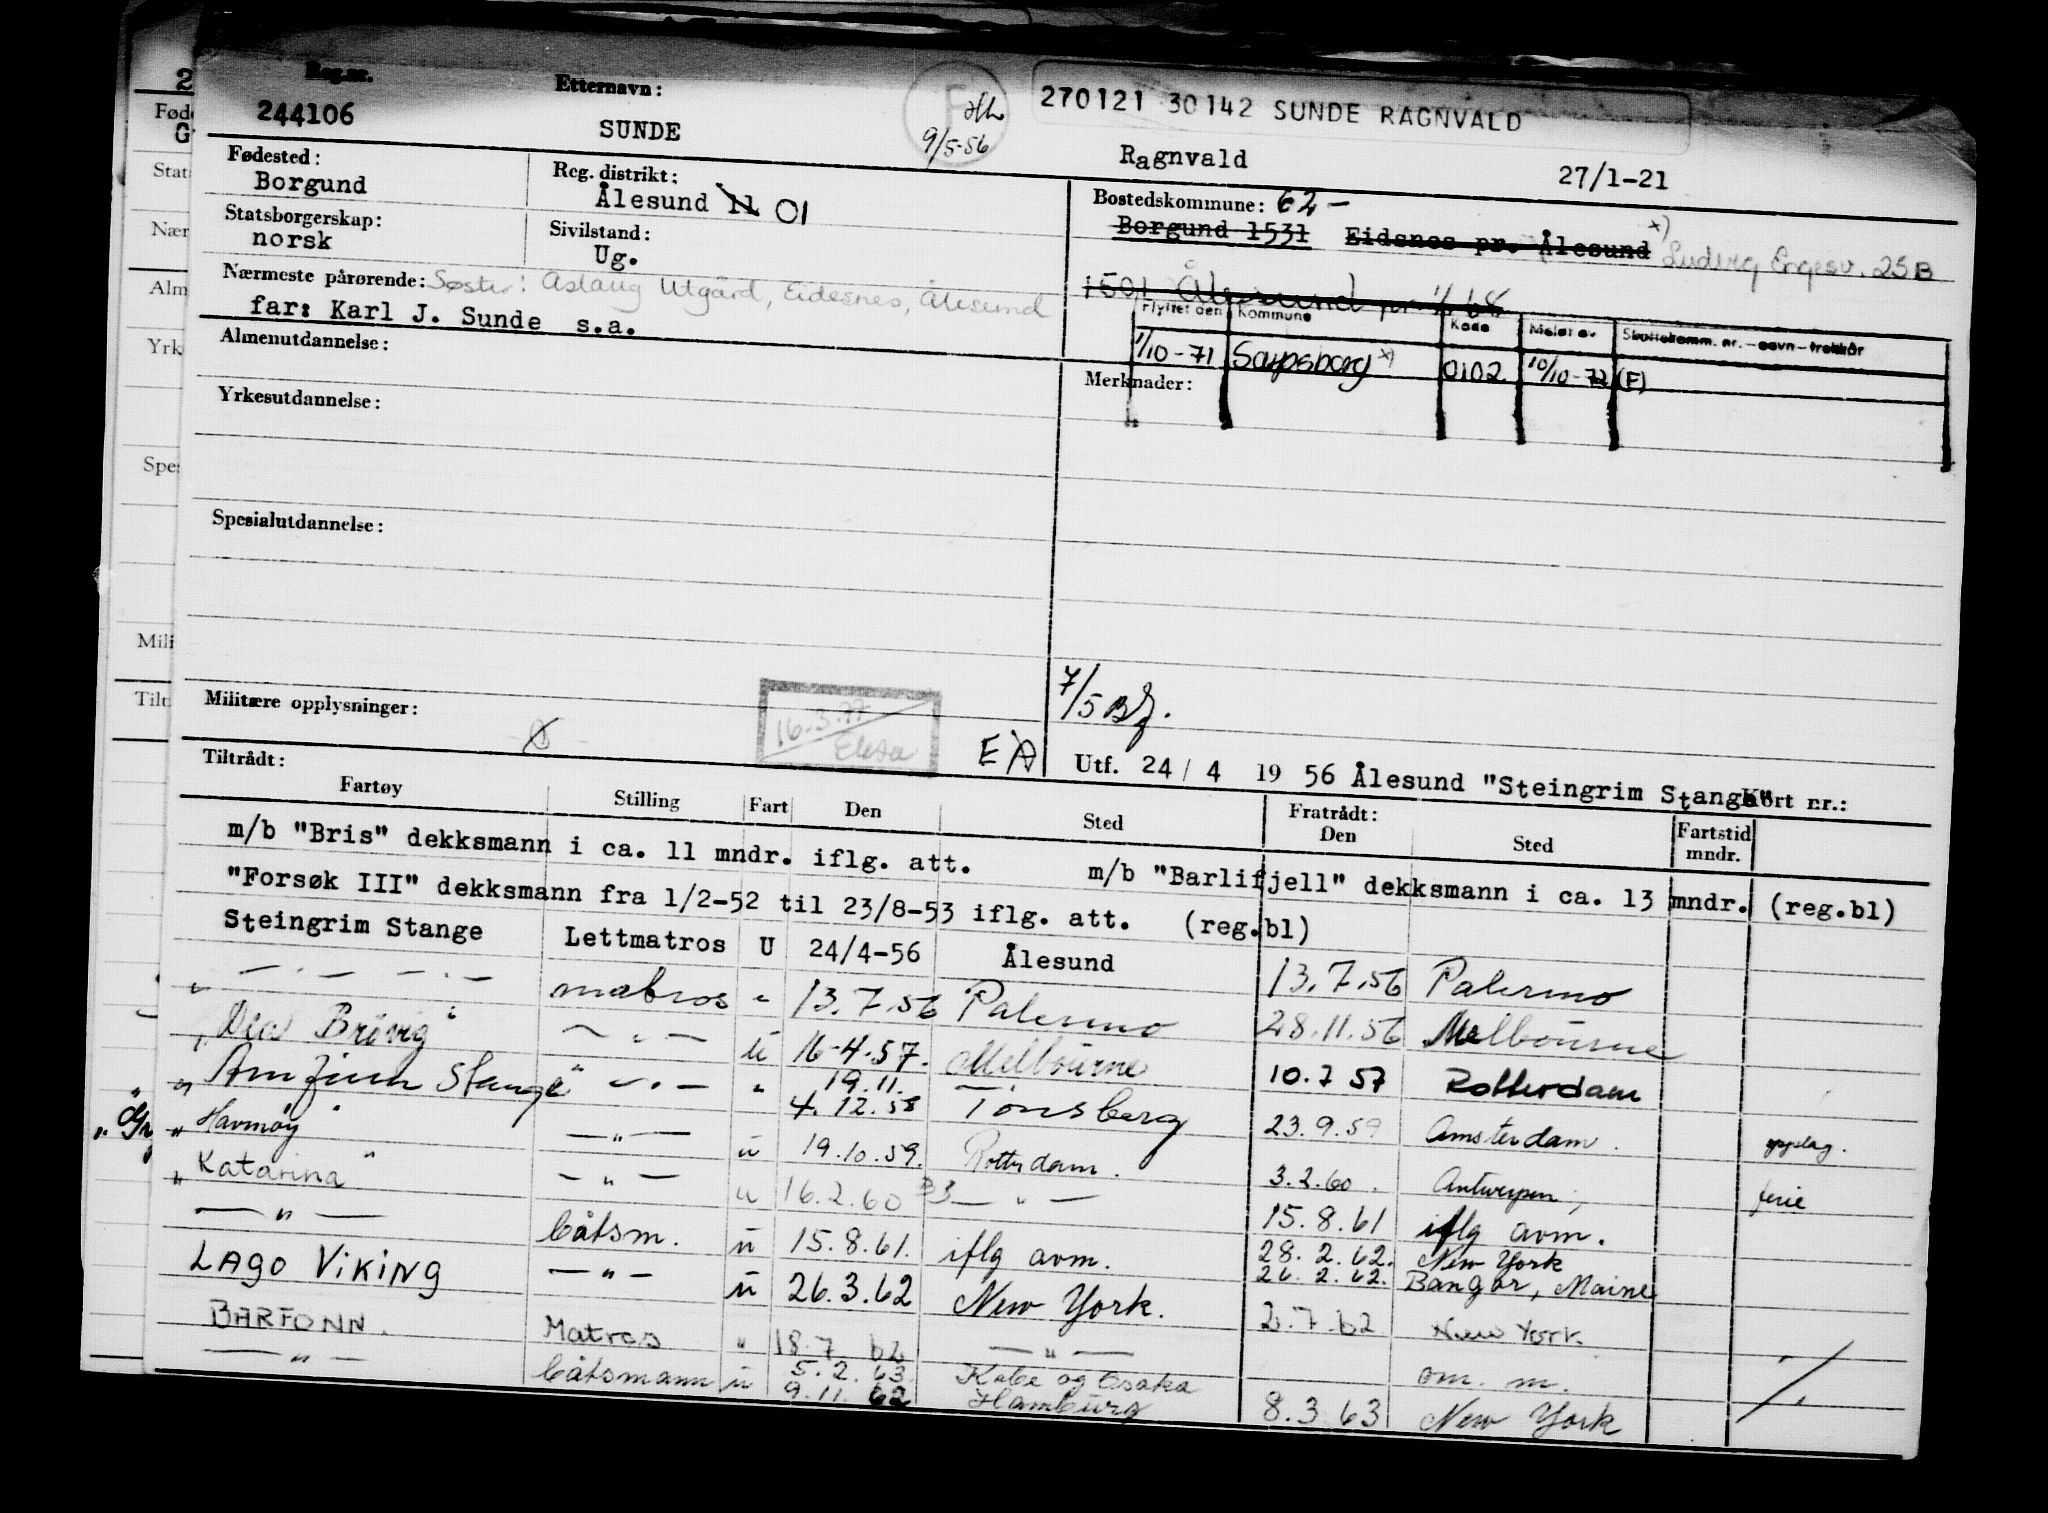 270121 30142 SUNDE RAGNVALD
Reg.nr. Etternavn:
244106 SUNDE 9/5-56 Ragnvald 27/1-21
Fødested: Reg. distrikt: Bostedskommune: 62-
Borgund Ålesund 11 01 Borgund 1531 Eidsnes pr. Ålesund x)
Statsborgerskap: Sivilstand: Ludvig Engesv. 25B
norsk Ug.
Nærmeste pårørende: Søster: Aslaug Utgård, Eidesnes, Ålesund 1501 Ålesund pr 1/1 68
far: Karl J. Sunde s.a.
Flyttet den Kommune Kode Meldt av Skattekomm. nr.-navn-trekkår
1/10-71 Sarpsborg x) 0102 10/10-72 (F)
Almenutdannelse: Merknader:
Yrkesutdannelse:
Spesialutdannelse:
7/5
Militære opplysninger: 16.3.77
EA Utf. 24/4 1956 Ålesund "Steingrim Stange" Kort nr.:
Tiltrådt: Fratrådt:
Fartøy Stilling Fart Den Sted Den Sted Fartstid mndr.
m/b "Bris" dekksmann i ca. 11 mndr. iflg. att. m/b "Barlifjell" dekksmann i ca. 13 mndr. (reg.bl)
"Forsøk III" dekksmann fra 1/2-52 til 23/8-53 iflg. att. (reg.bl)
Steingrim Stange Lettmatros U 24/4-56 Ålesund 13.7.56 Palermo
— . — — . — matros " 13.7.56 Palermo 28.11.56 Melbourne
"Dea Brøvig" — " — u 16-4-57. Melbourne 10.7 57 Rotterdam
"Arnfinn Stange" — " — " 19.11. 4.12.58 Tønsberg 23.9.59 Amsterdam. opplag.
"Havmøy" — " — u 19.10.59. Rotterdam. 3.2.60. Antwerpen, ferie
"Katarina" — " — u 16.2.60 — " — 15.8.61 iflg avm.
— " — båtsm. u 15.8.61. iflg avm. 28.2.62. New York
26.2.62. Bangor, Maine
LAGO VIKING — " — u 26.3.62 New York. 2.7.62 New York
BARFONN. Matros " 18.7.62 — " — om. m.
— " — båtsmann u 5.2.63. Kobe og Osaka
9.11.62 Hamburg 8.3.63 New York